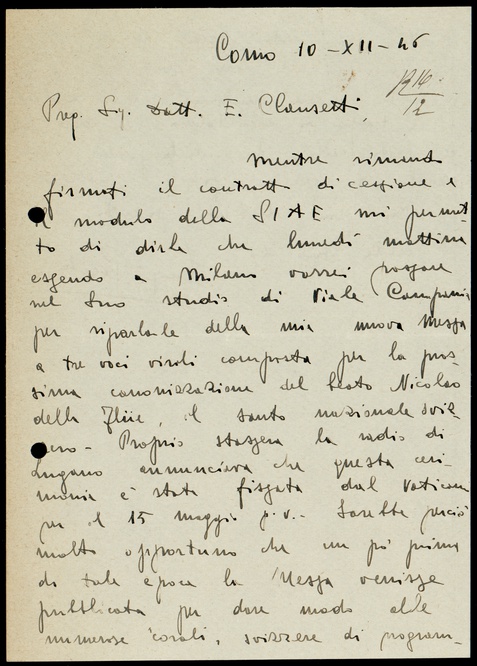 Como 10-XII-46
R 14/12
Preg. Sig. Dott. E. Clausetti,
Mentre rimando
firmati il contratto di cessione e
il modulo della SIAE mi permet-
to di dirle che lunedì mattina
essendo a Milano vorrei passare
nel Suo studio di Viale Campania
per riparlarle della mia nuova Messa
a tre voci virili composta per la pros-
sima canonizzazione del beato Nicolao
della Flüe, il santo nazionale sviz-
zero - Proprio stassera la radio di
Lugano annunciava che questa ceri-
monia è stata fissata dal Vaticano
per il 15 maggio p.v.- Sarebbe perciò
molto opportuno che un pò prima
di tale epoca la Messa venisse
pubblicata per dare modo alle
numerose corali, svizzere di program-